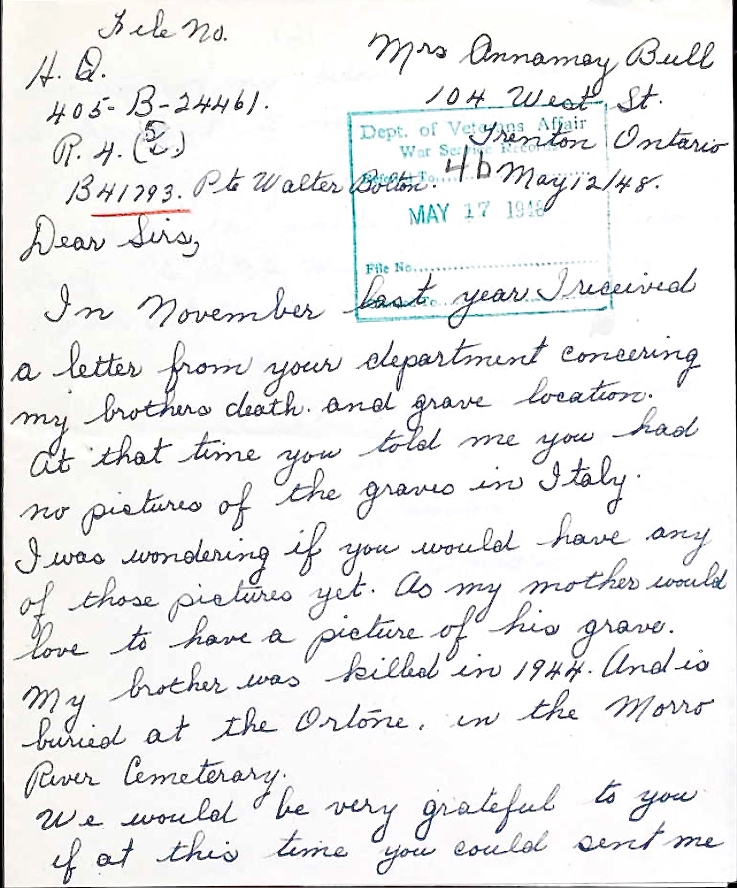 File No.
H. Q.
405-B-24461.
R. 4. (5)
B41793. Pte Walter Bolton.
Mrs Annamay Bull
104 West St.
Trenton Ontario
May 12/48.
Dept. of Veterans Affair
War Service Records
4b
MAY 17 1948
File No.
Dear Sirs,
In November last year I received
a letter from your department concering
my brothers death. and grave location.
At that time you told me you had
no pictures of the graves in Italy.
I was wondering if you would have any
of those pictures yet. As my mother would
love to have a picture of his grave.
My brother was killed in 1944. And is
buried at the Ortōne. in the Morro
River Cemeterary.
We would be very grateful to you
if at this time you could sent me